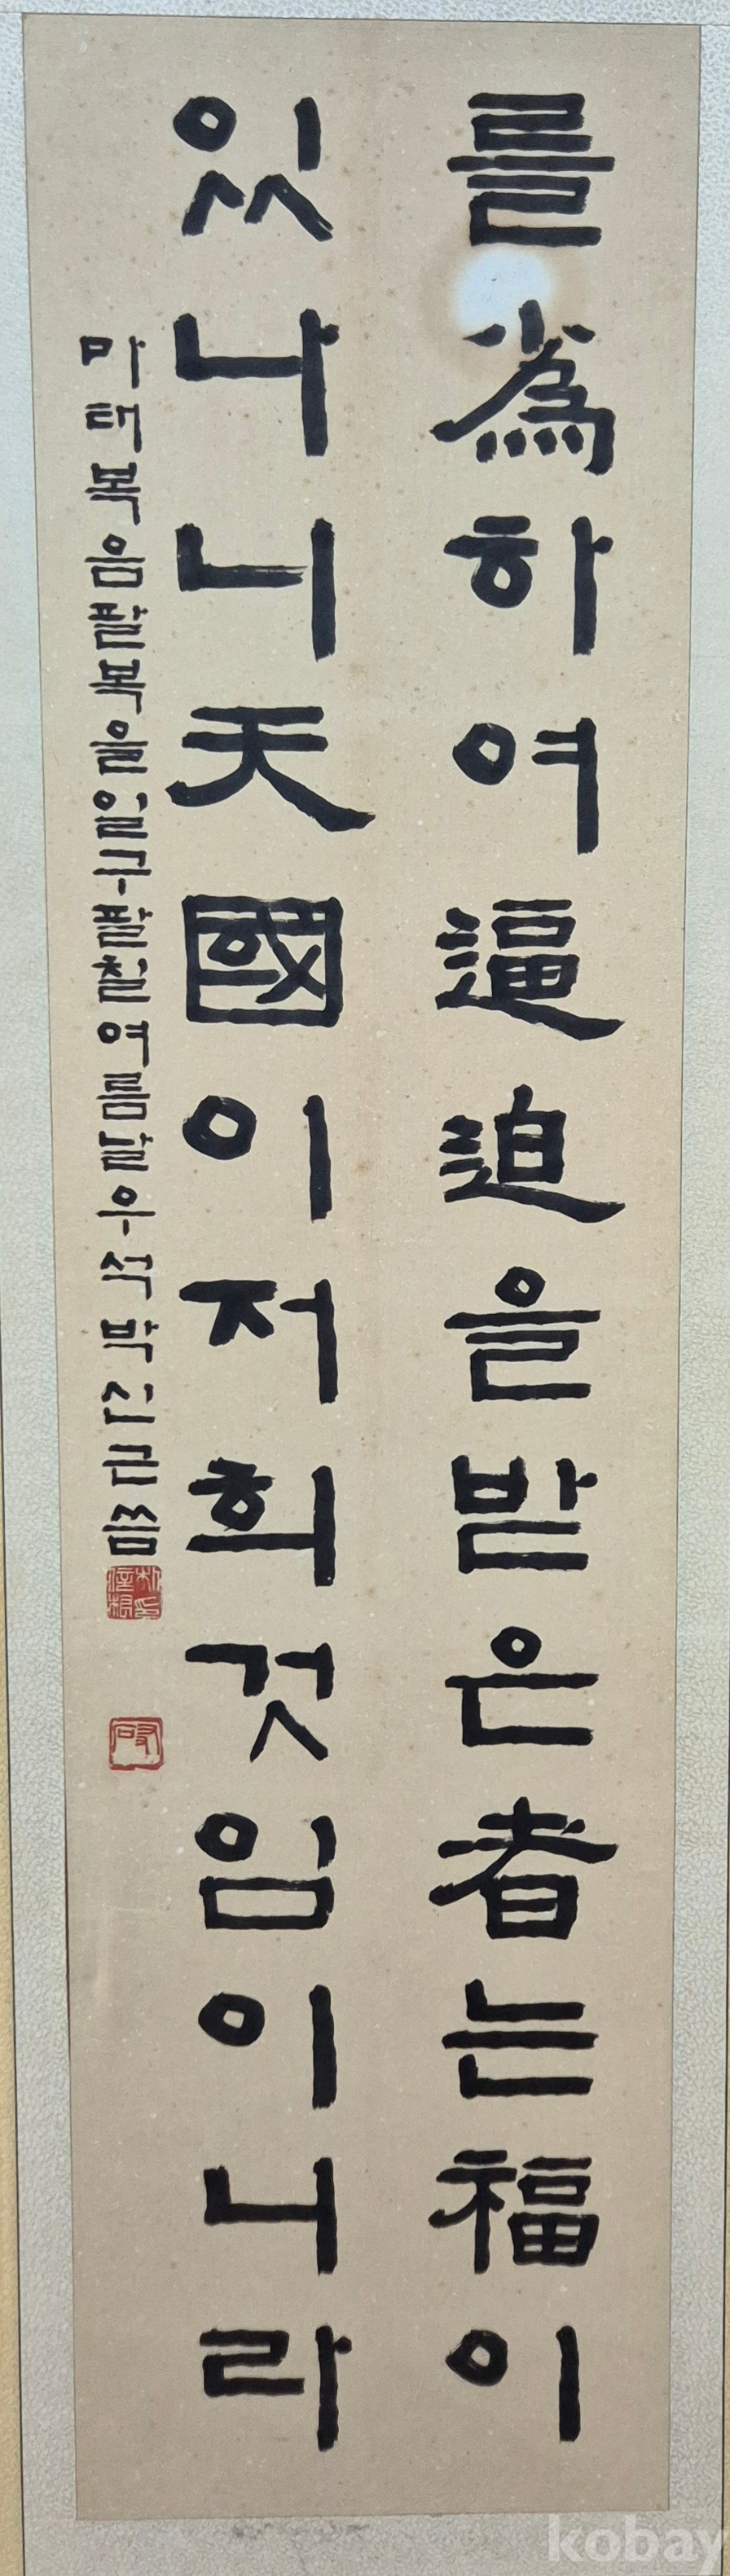 를爲하여逼迫을받은者는福이
있나니天國이저희것임이니라
마태복음팔복을일구팔칠여름날우석박신근씀
kobay